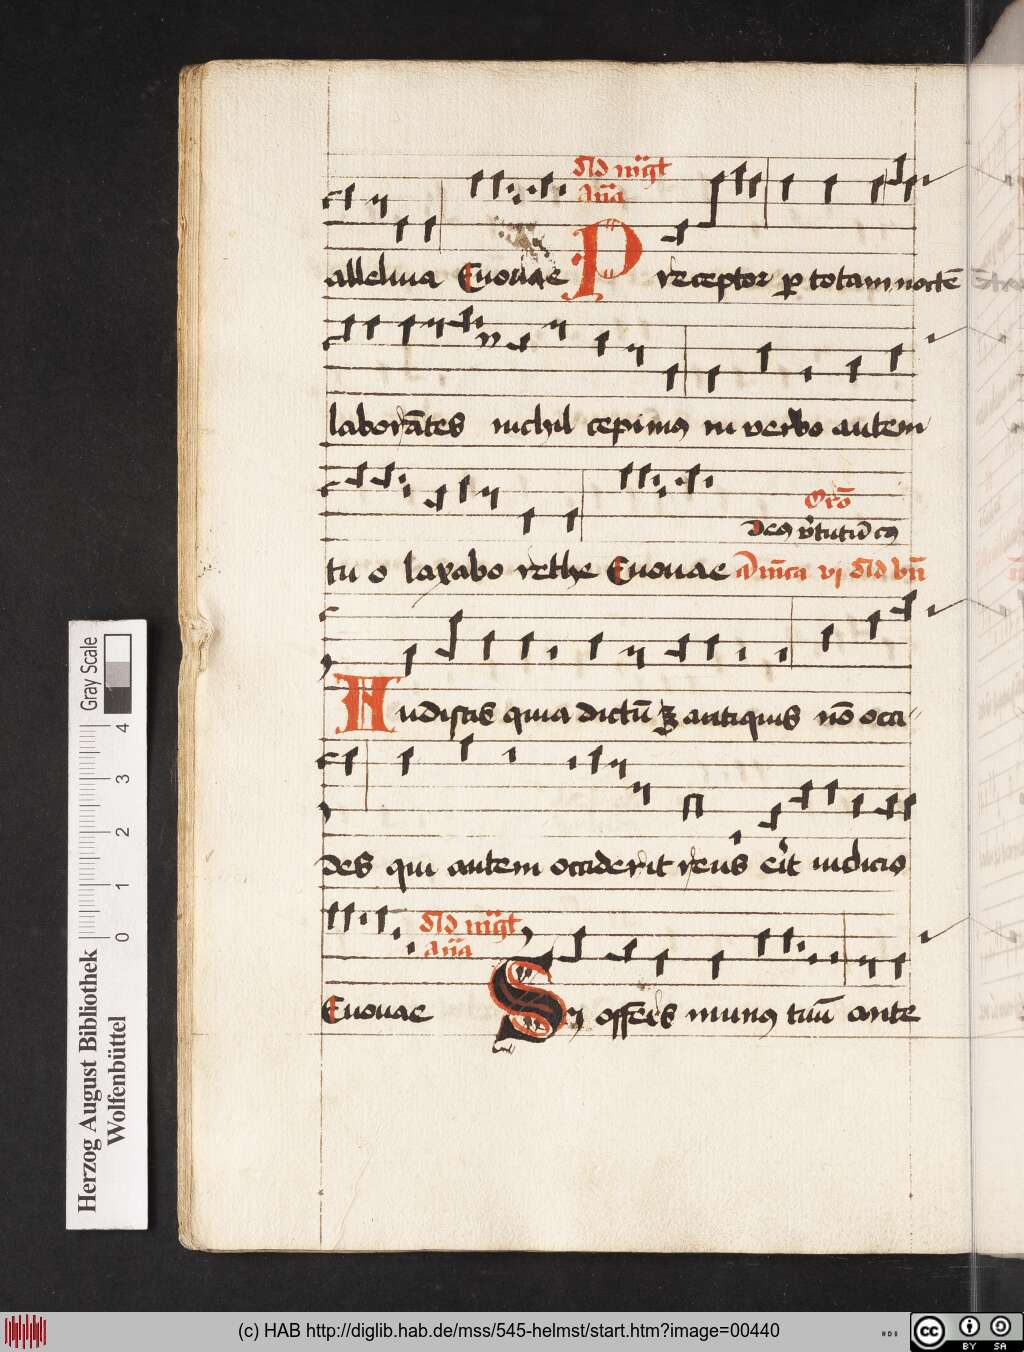 Ad mgt
Ana
alleluia Euouae Preceptor p totam noctē
laborātes nichil cepimus in verbo autem
Oro
Deus v̾tutū cuius
tu o laxabo rethe Euouae Dnica vi Ad bn̄
Audistis quia dictū ē antiquis nō occi
des qui autem occiderit reus erit iudicio
Ad mgt
Ana
Euouae Si offers munus tuū ante
Gray Scale
0 1 2 3 4
Herzog August Bibliothek
Wolfenbüttel
(c) HAB http://diglib.hab.de/mss/545-helmst/start.htm?image=00440
cc BY SA